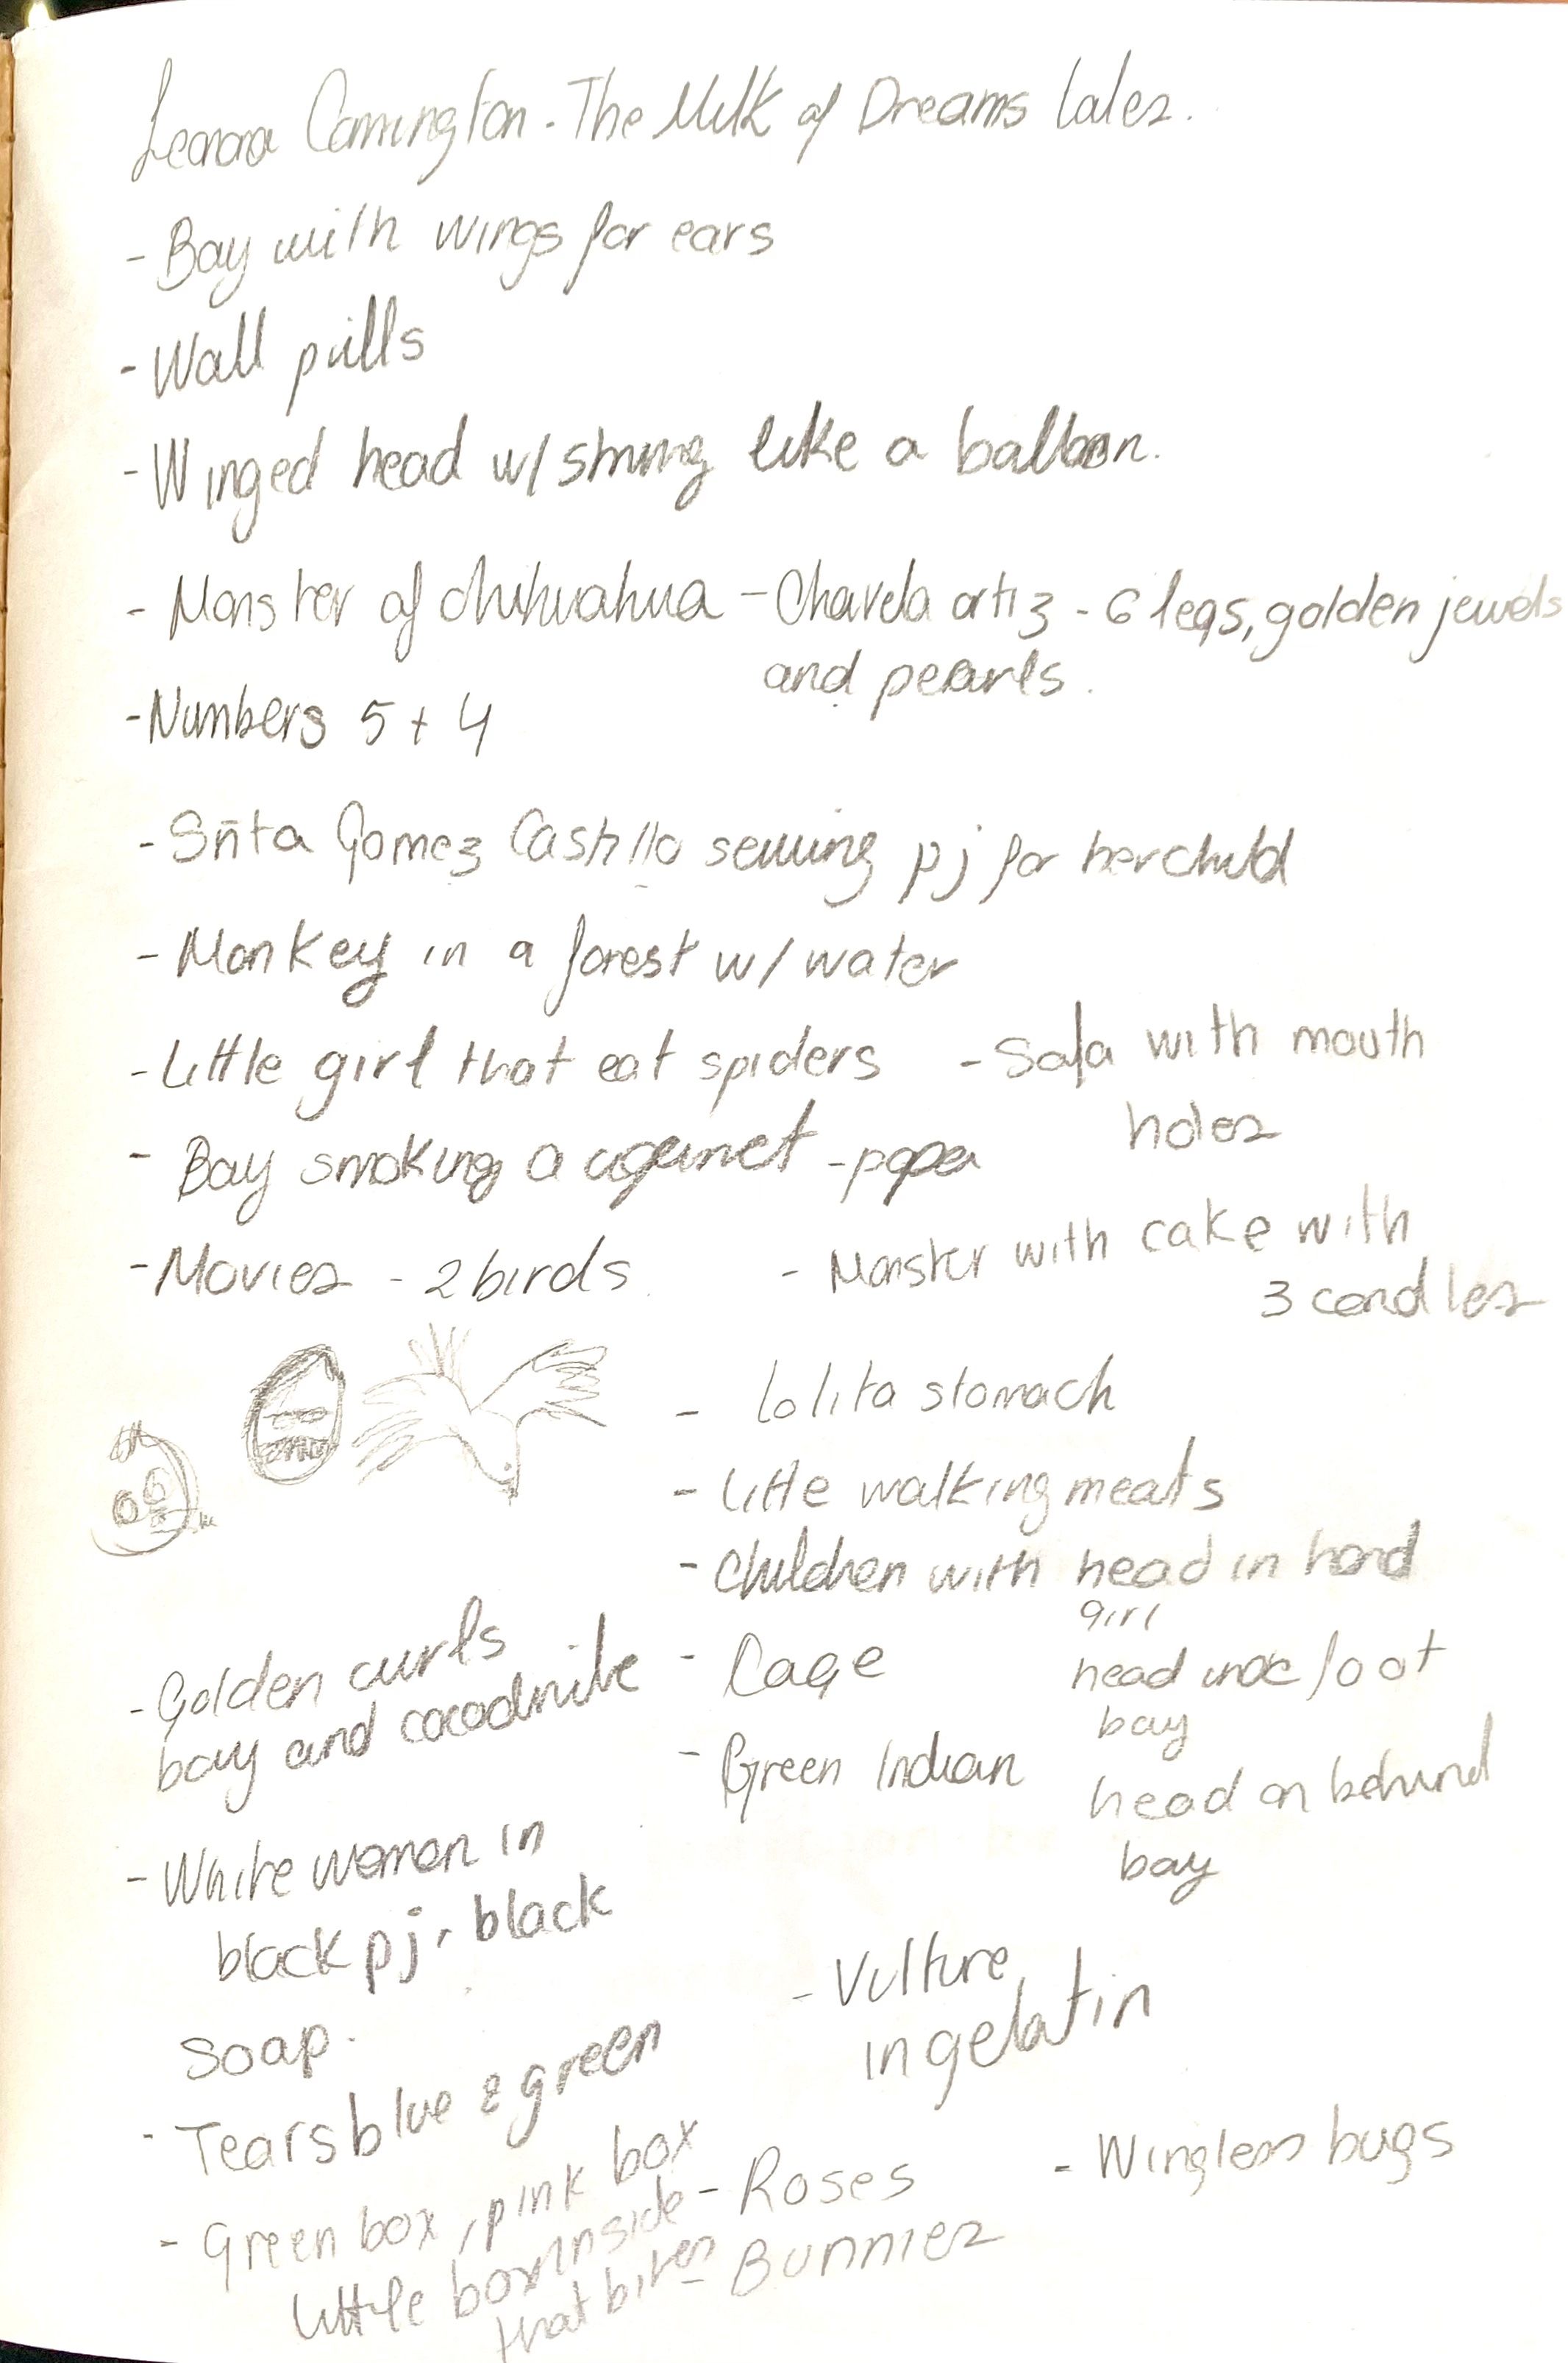 Leonora Carrington - The Milk of Dreams tales.
- Boy with wings for ears
- Wall pills
- Winged head w/ string like a balloon.
- Monster of chihuahua - Chavela ortiz - 6 legs, golden jewels
and pearls.
- Numbers 5 + 4
- Sñta Gomez Castillo sewing pj for her child
- Monkey in a forest w/ water
- Little girl that eat spiders
- Sofa with mouth
holes
- Boy smoking a cigarret - papa
- Movies - 2 birds.
- Monster with cake with
3 candles
- lolita stomach
- little walking meats
- Children with head in hand
girl
head foot
boy
head on behind
boy
- Cage
- Green Indian
- Golden curls
boy and cocodrile
- White woman in
black pj, black
soap.
- Tears blue & green
- Vulture
in gelatin
- Green box, pink box
little box inside
that bites
- Roses
- Bunnies
- Wingless bugs